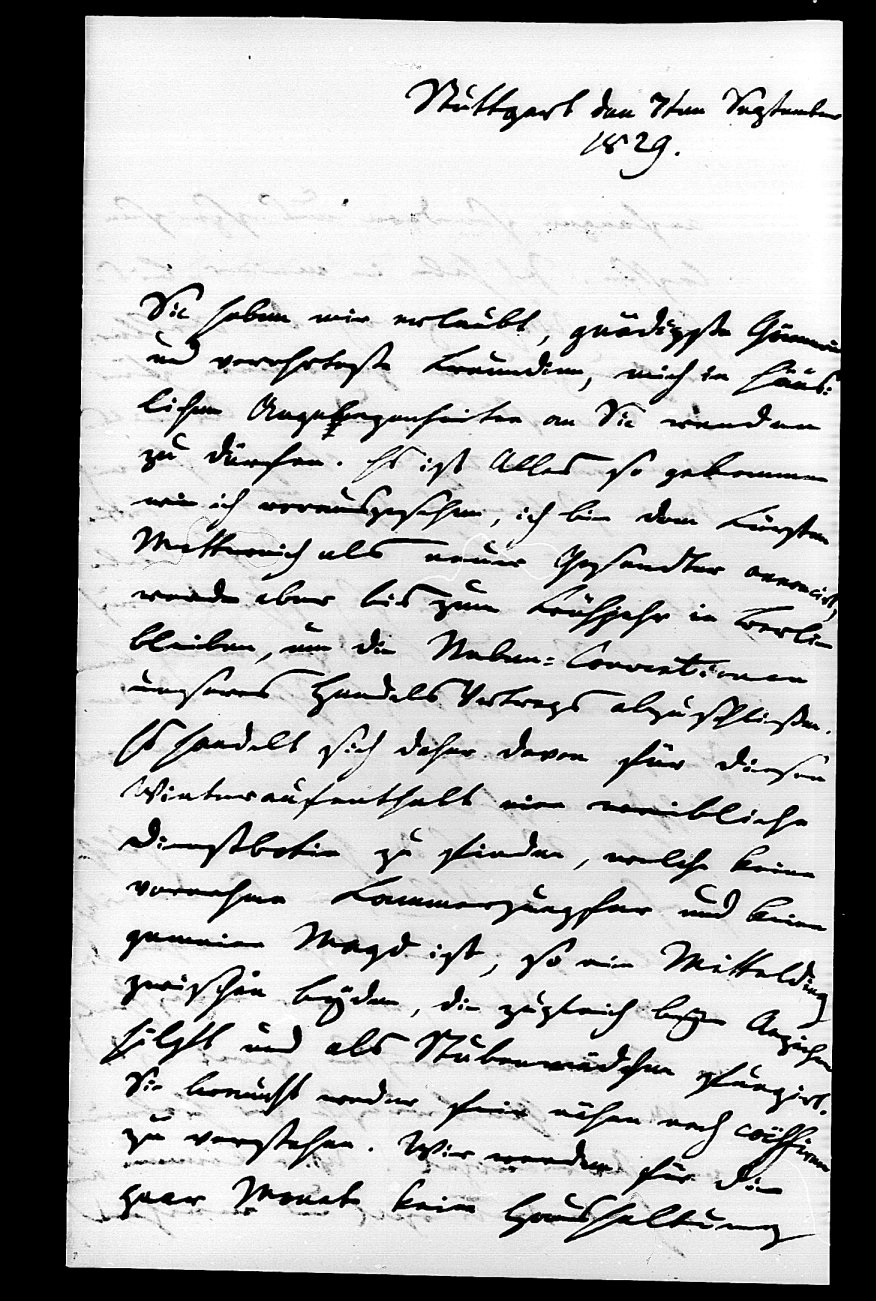 Stuttgart den 7ten September
1829.
Sie haben mir erlaubt, gnädigste Gönnerin
und verehrteste Freundin, mich in häus:
lichen Angelegenheiten an Sie wenden
zu dürfen. Es ist Alles so gekommen
wie ich vorausgesehen, ich bin dem Fürsten
Metternich als neuer Gesandter annoncirt,
werde aber bis zum Frühjahr in Berlin
bleiben, um die Neben=Conventionen
unseres Handels Vertrags abzuschließen.
Es handelt sich daher davon für diesen
Winteraufenthalt eine weibliche
Dienstbotin zu finden, welche keine
vornehme Kammerjungfer und keine
gemeine Magd ist, so ein Mittelding
zwischen beyden, die zugleich beym Anziehen
hilft und als Stubenmädchen fungirt.
Sie braucht weder fein nähen noch coiffiren
zu verstehen. Wir werden für die
paar Monate keine Haushaltung